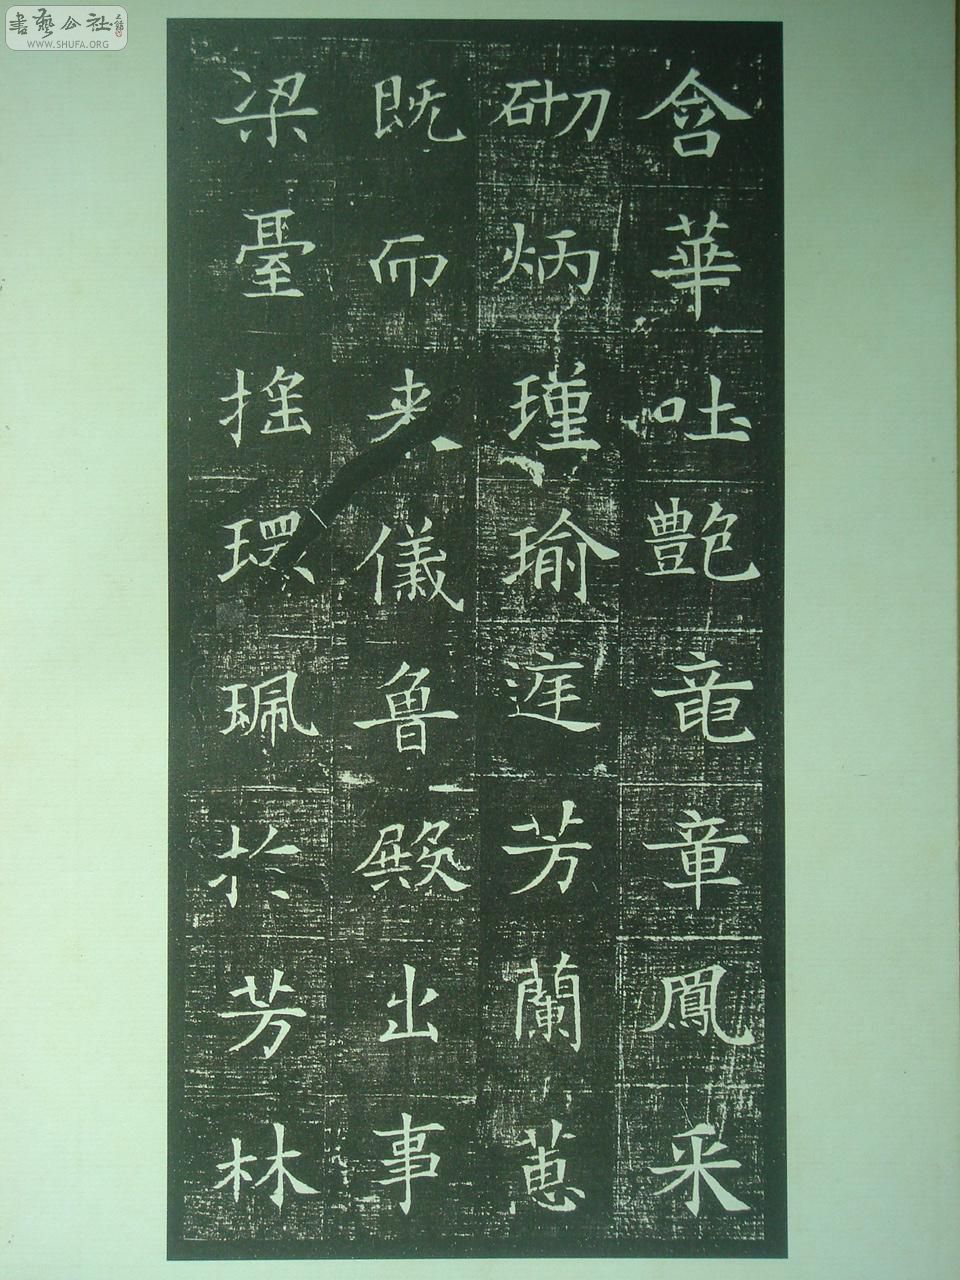 含華吐艷龍章鳳采
砌炳瑾瑜庭芳蘭蕙
既而来儀魯殿出事
梁臺搖環珮於芳林
書藝公社
WWW.SHUFA.ORG